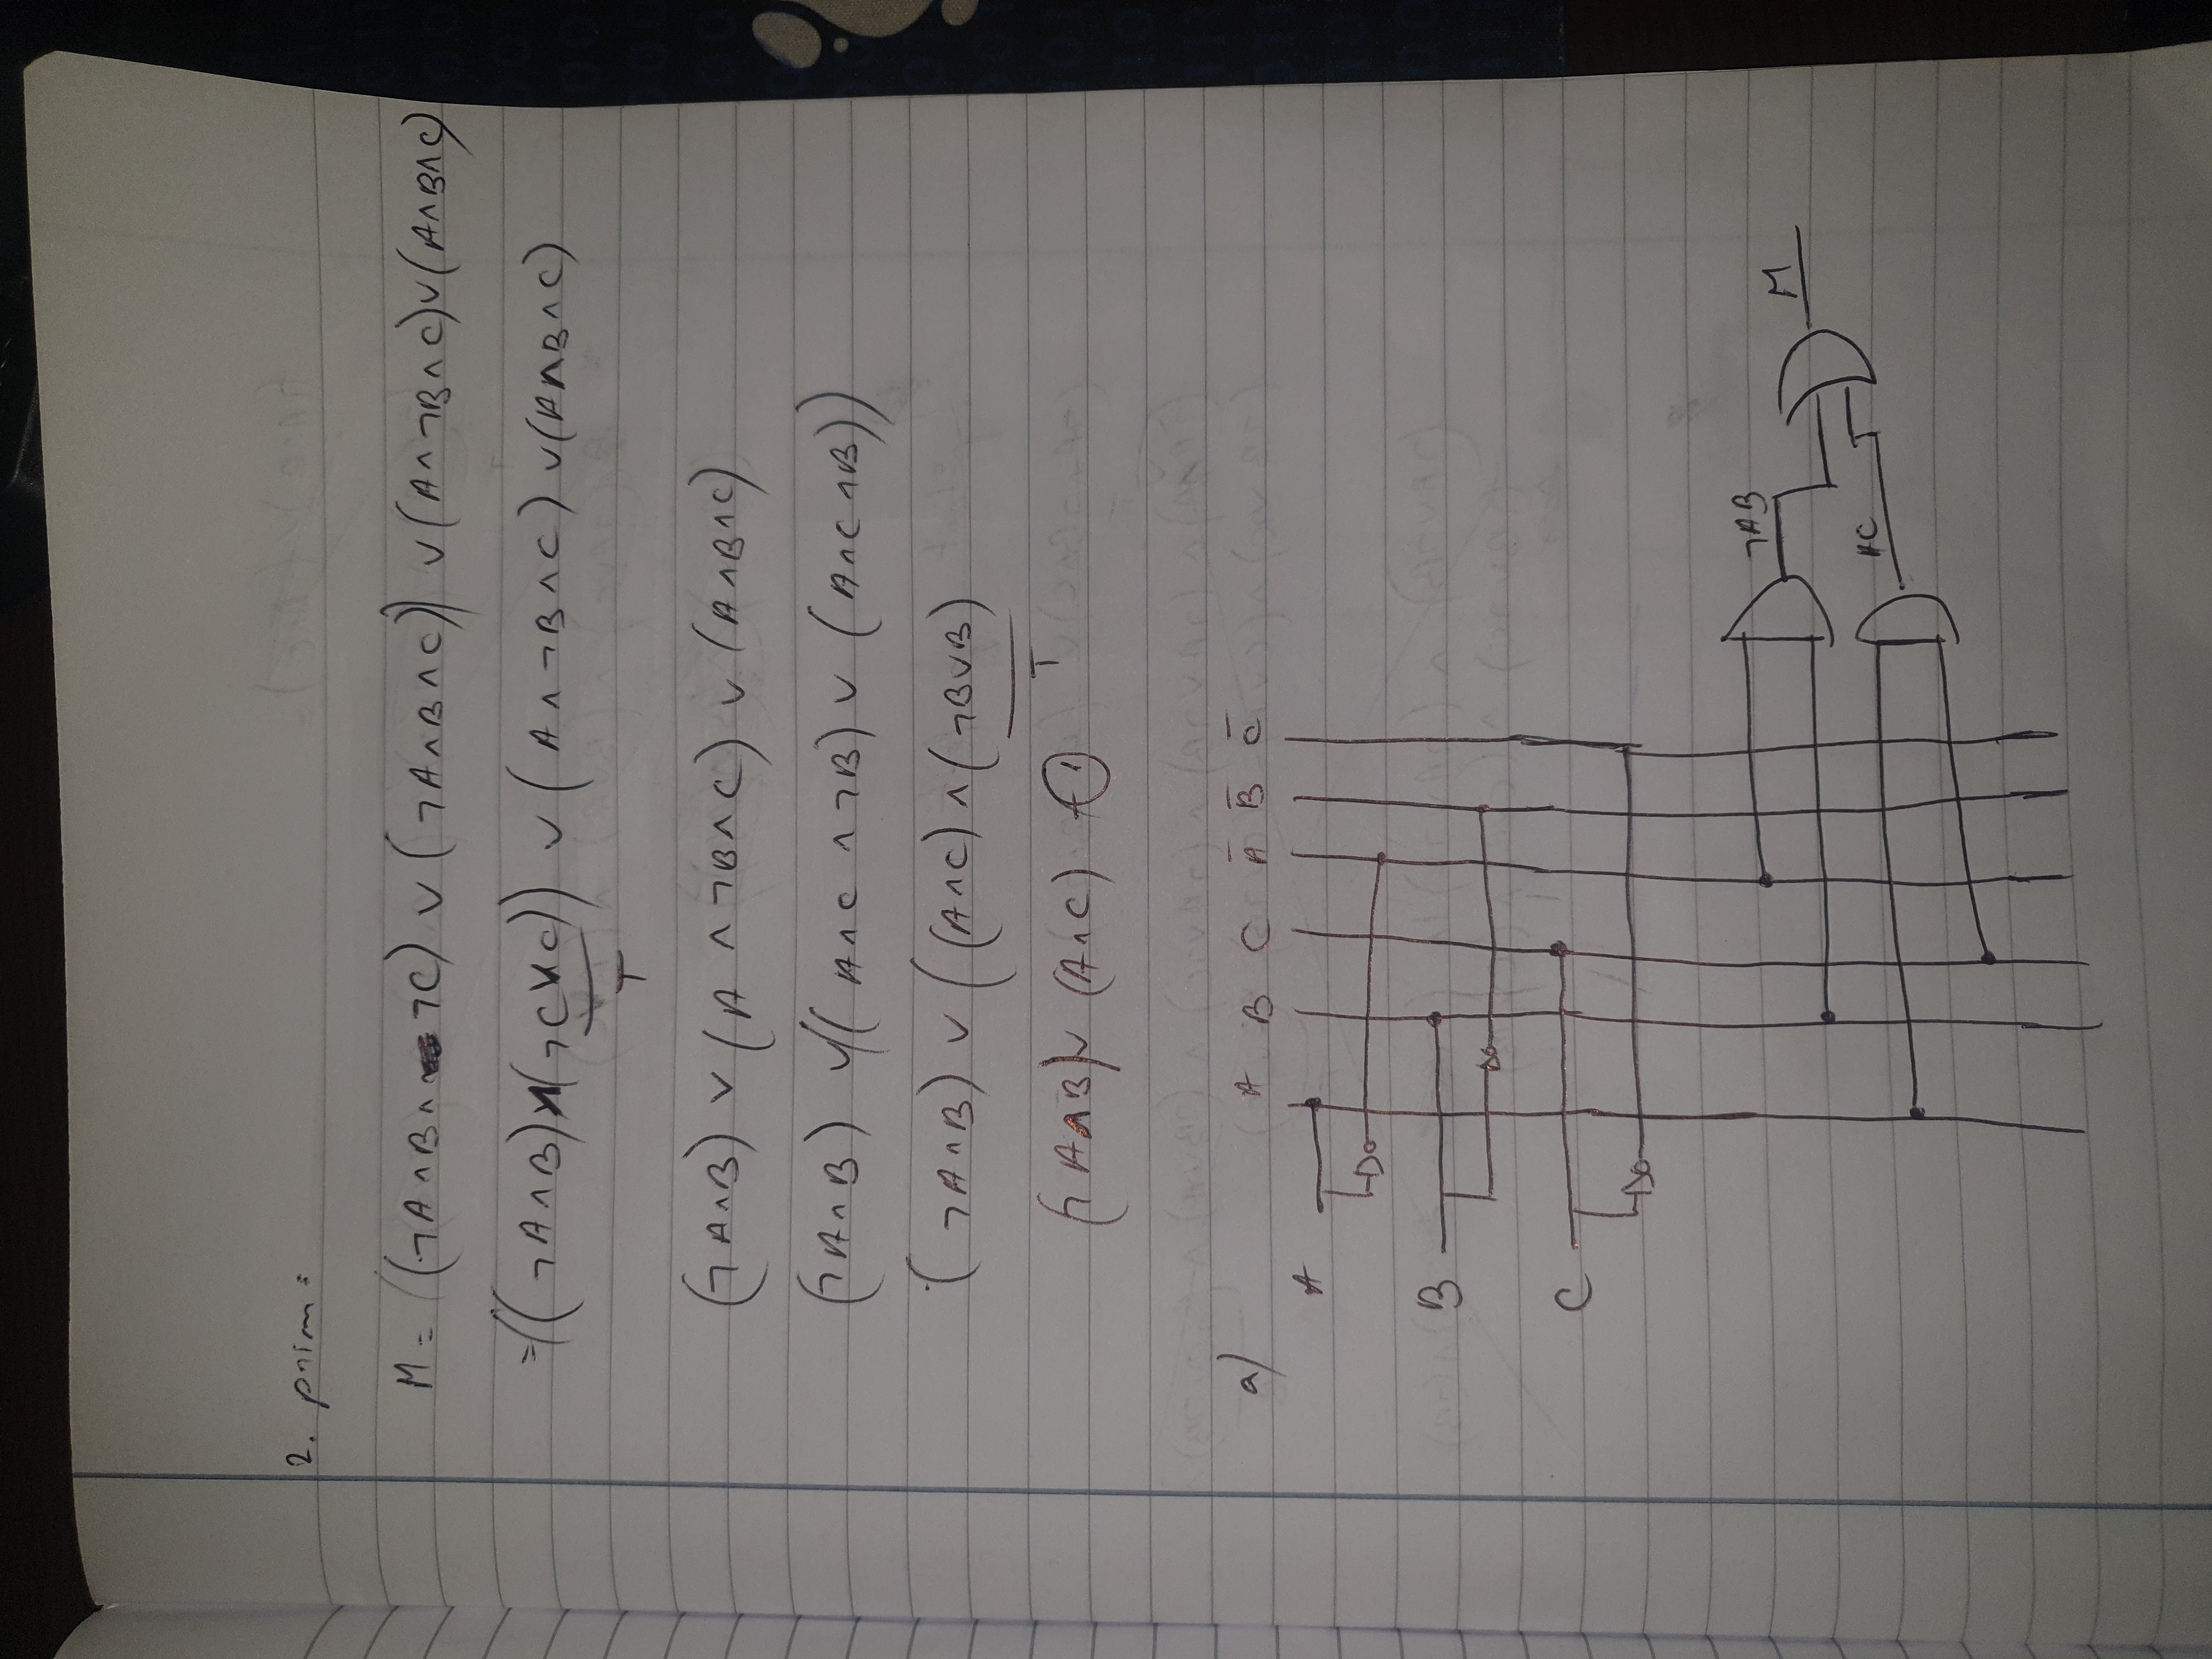 2. prim:
M = ((¬A∧B∧¬C) ∨ (¬A∧B∧C)) ∨ (A∧¬B∧C)∨(A∧B∧C)
=((¬A∧B)∧(¬C∨C)) ∨ (A∧¬B∧C) ∨(A∧B∧C)
T
(¬A∧B) ∨ (A ∧¬B∧C) ∨ (A∧B∧C)
(¬A∧B) ∨((A∧C ∧¬B) ∨ (A∧C∧B))
(¬A∧B) ∨ ((A∧C) ∧ (¬B∨B)
T
(¬A∧B)∨ (A∧C) ①
a)
A B C A̅ B̅ C̅
A
B
C
¬AB
M
AC